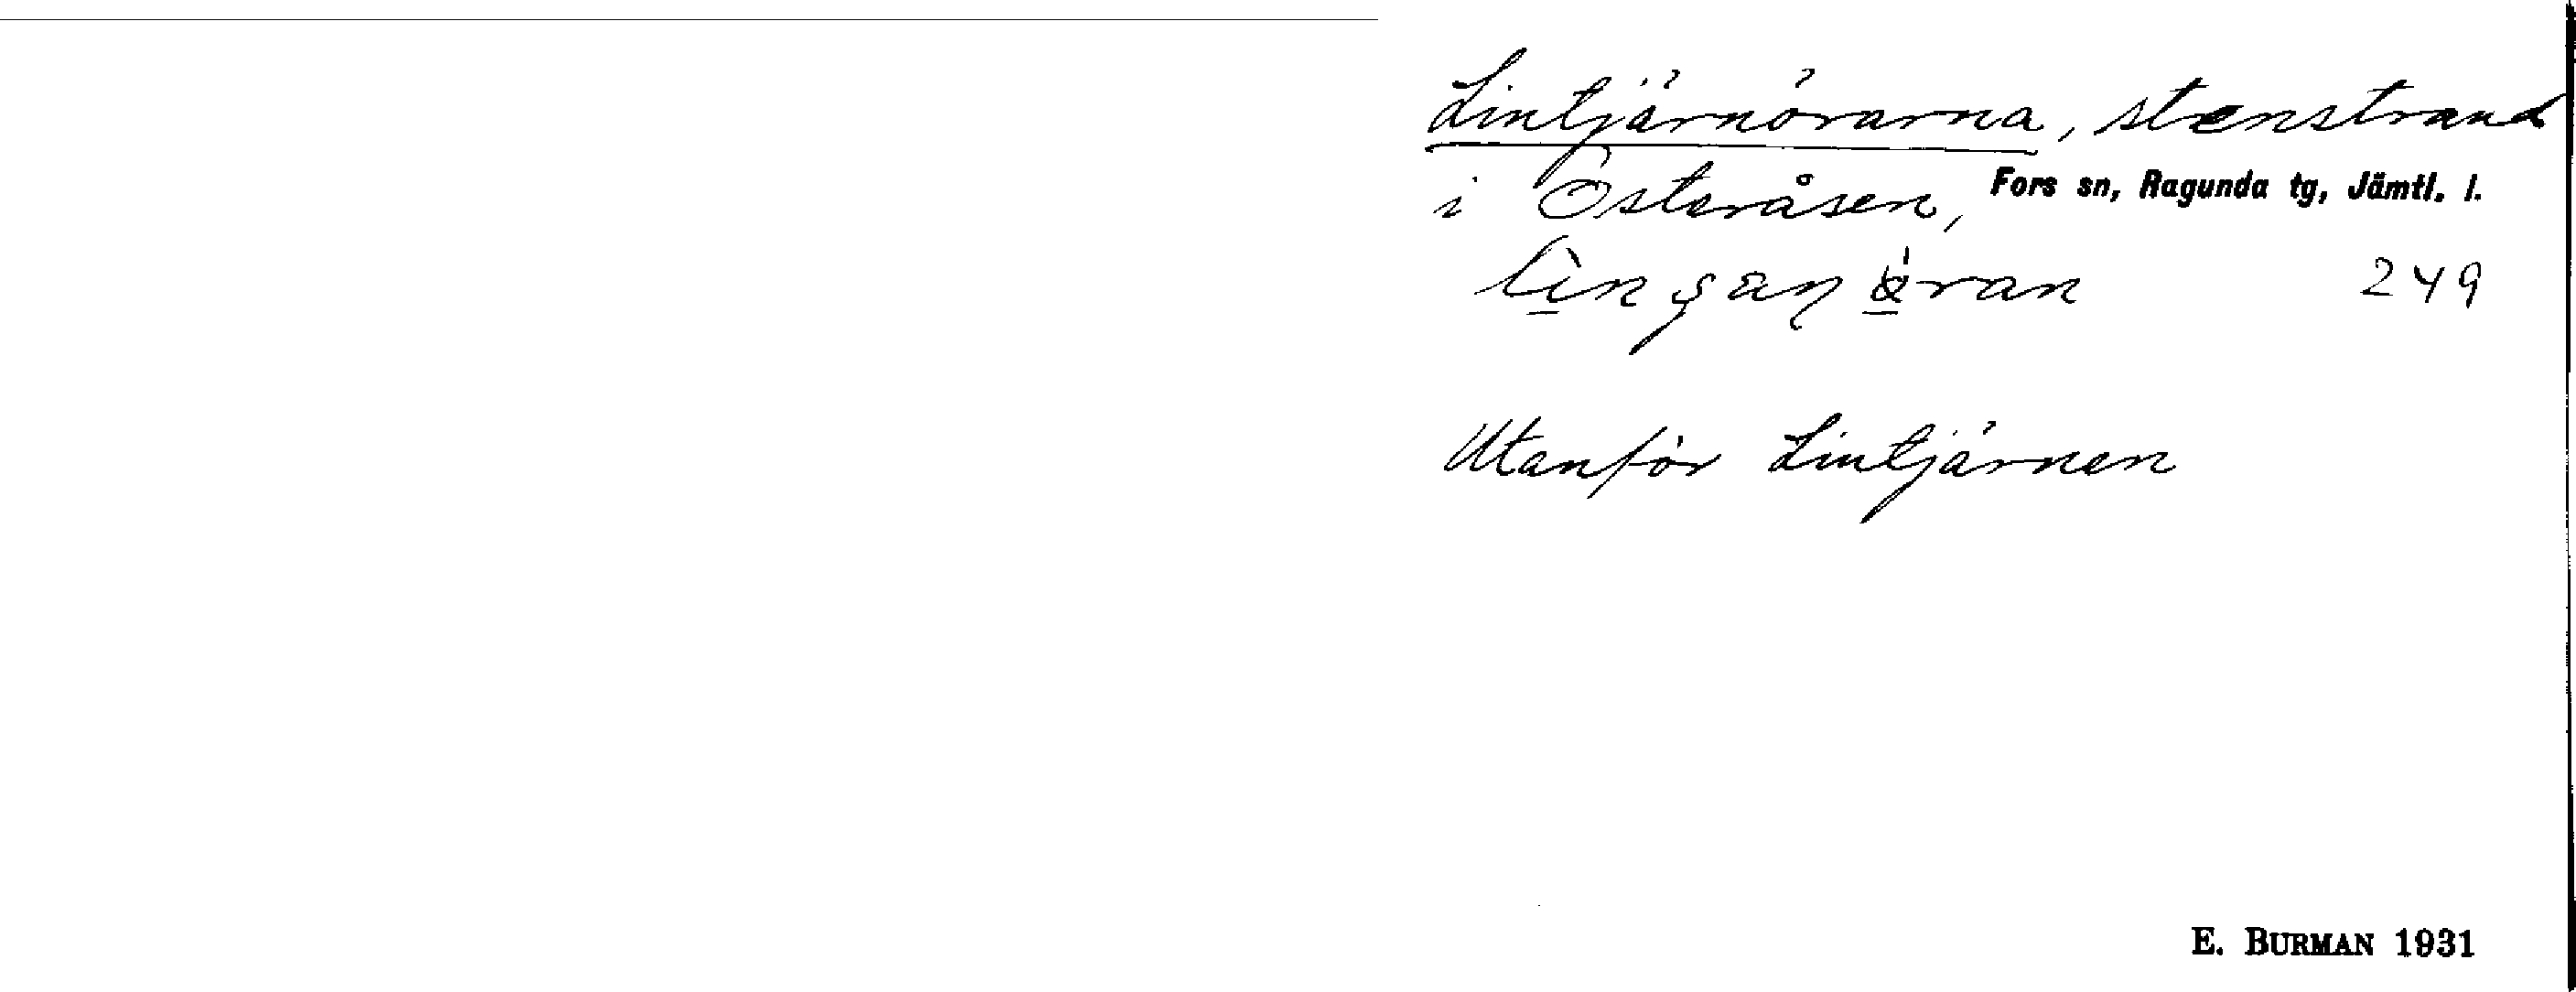 Lintjärnörarna, stenstrand
i Österåsen, Fors sn, Ragunda tg, Jämtl. l.
249
Utanför Lintjärnen
E. BURMAN 1931